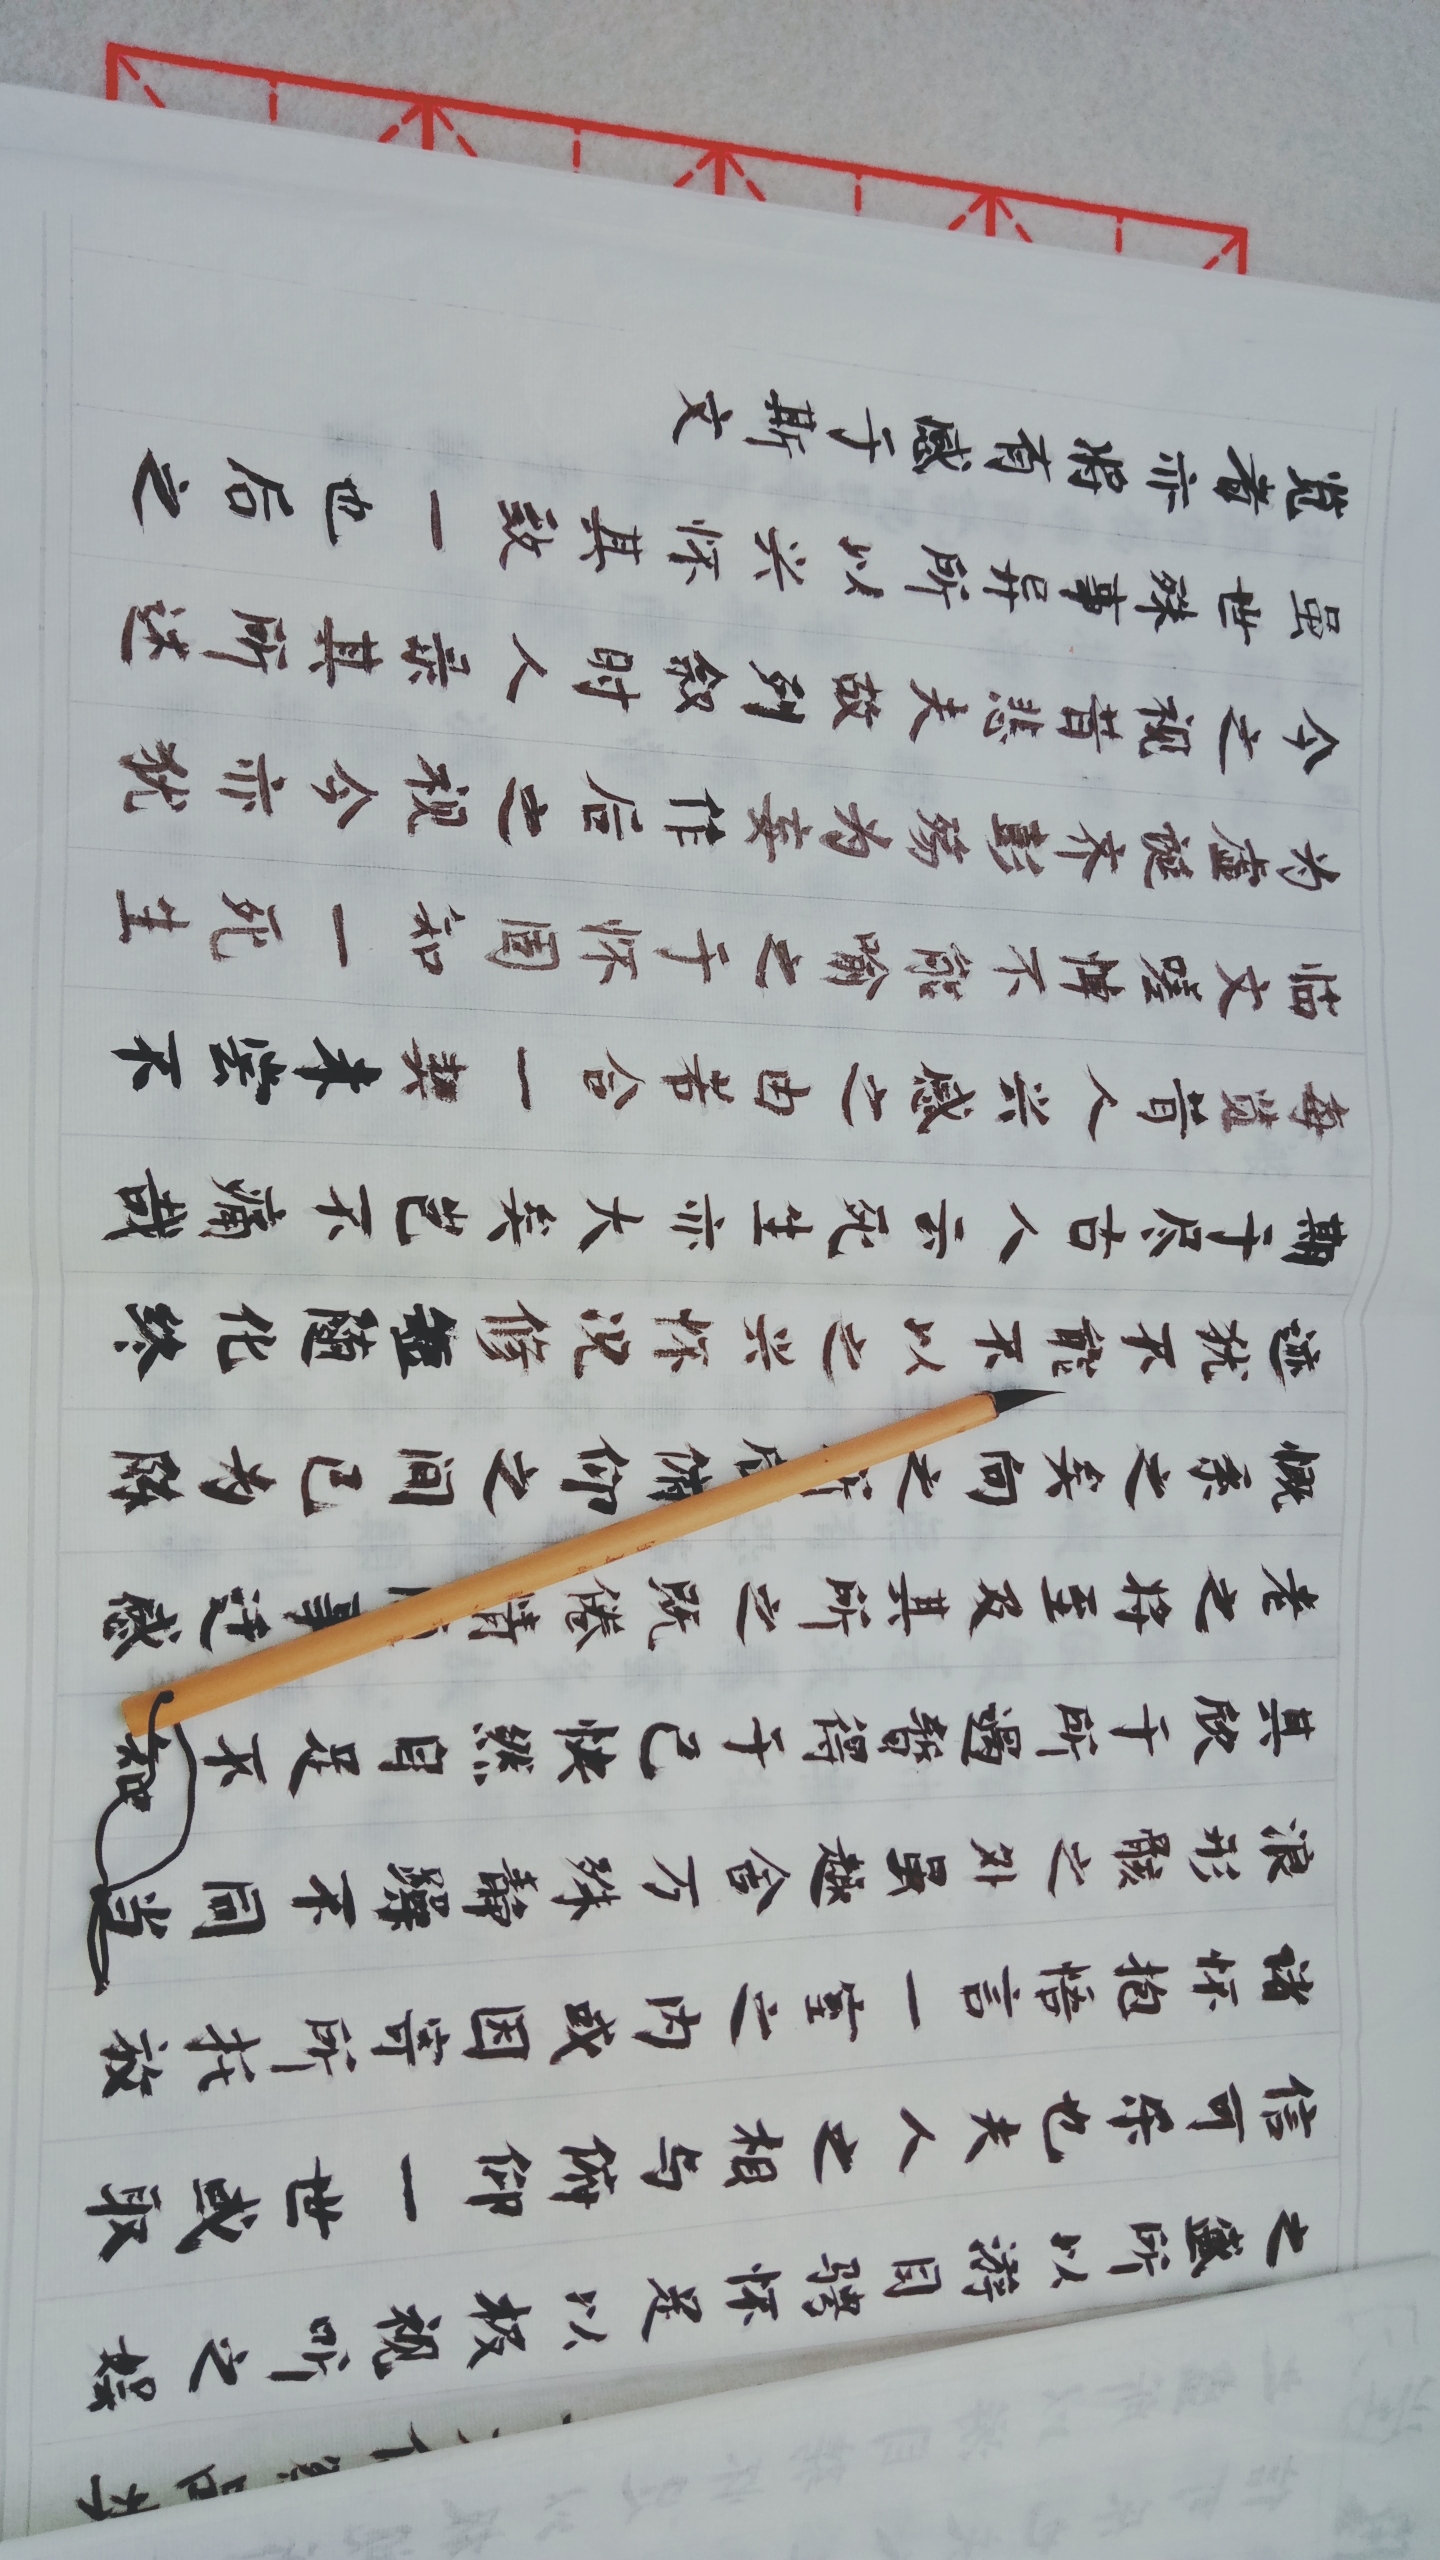 察品类
之盛所以游目骋怀足以极视听之娱
信可乐也夫人之相与俯仰一世或取
诸怀抱悟言一室之内或因寄所托放
浪形骸之外虽趣舍万殊静躁不同当
其欣于所遇暂得于己快然自足不知
老之将至及其所之既倦情事迁感
慨系之矣向之所欣俯仰之间已为陈
迹犹不能不以之兴怀况修短随化终
期于尽古人云死生亦大矣岂不痛哉
每览昔人兴感之由若合一契未尝不
临文嗟悼不能喻之于怀固知一死生
为虚诞齐彭殇为妄作后之视今亦犹
今之视昔悲夫故列叙时人录其所述
虽世殊事异所以兴怀其致一也后之
览者亦将有感于斯文